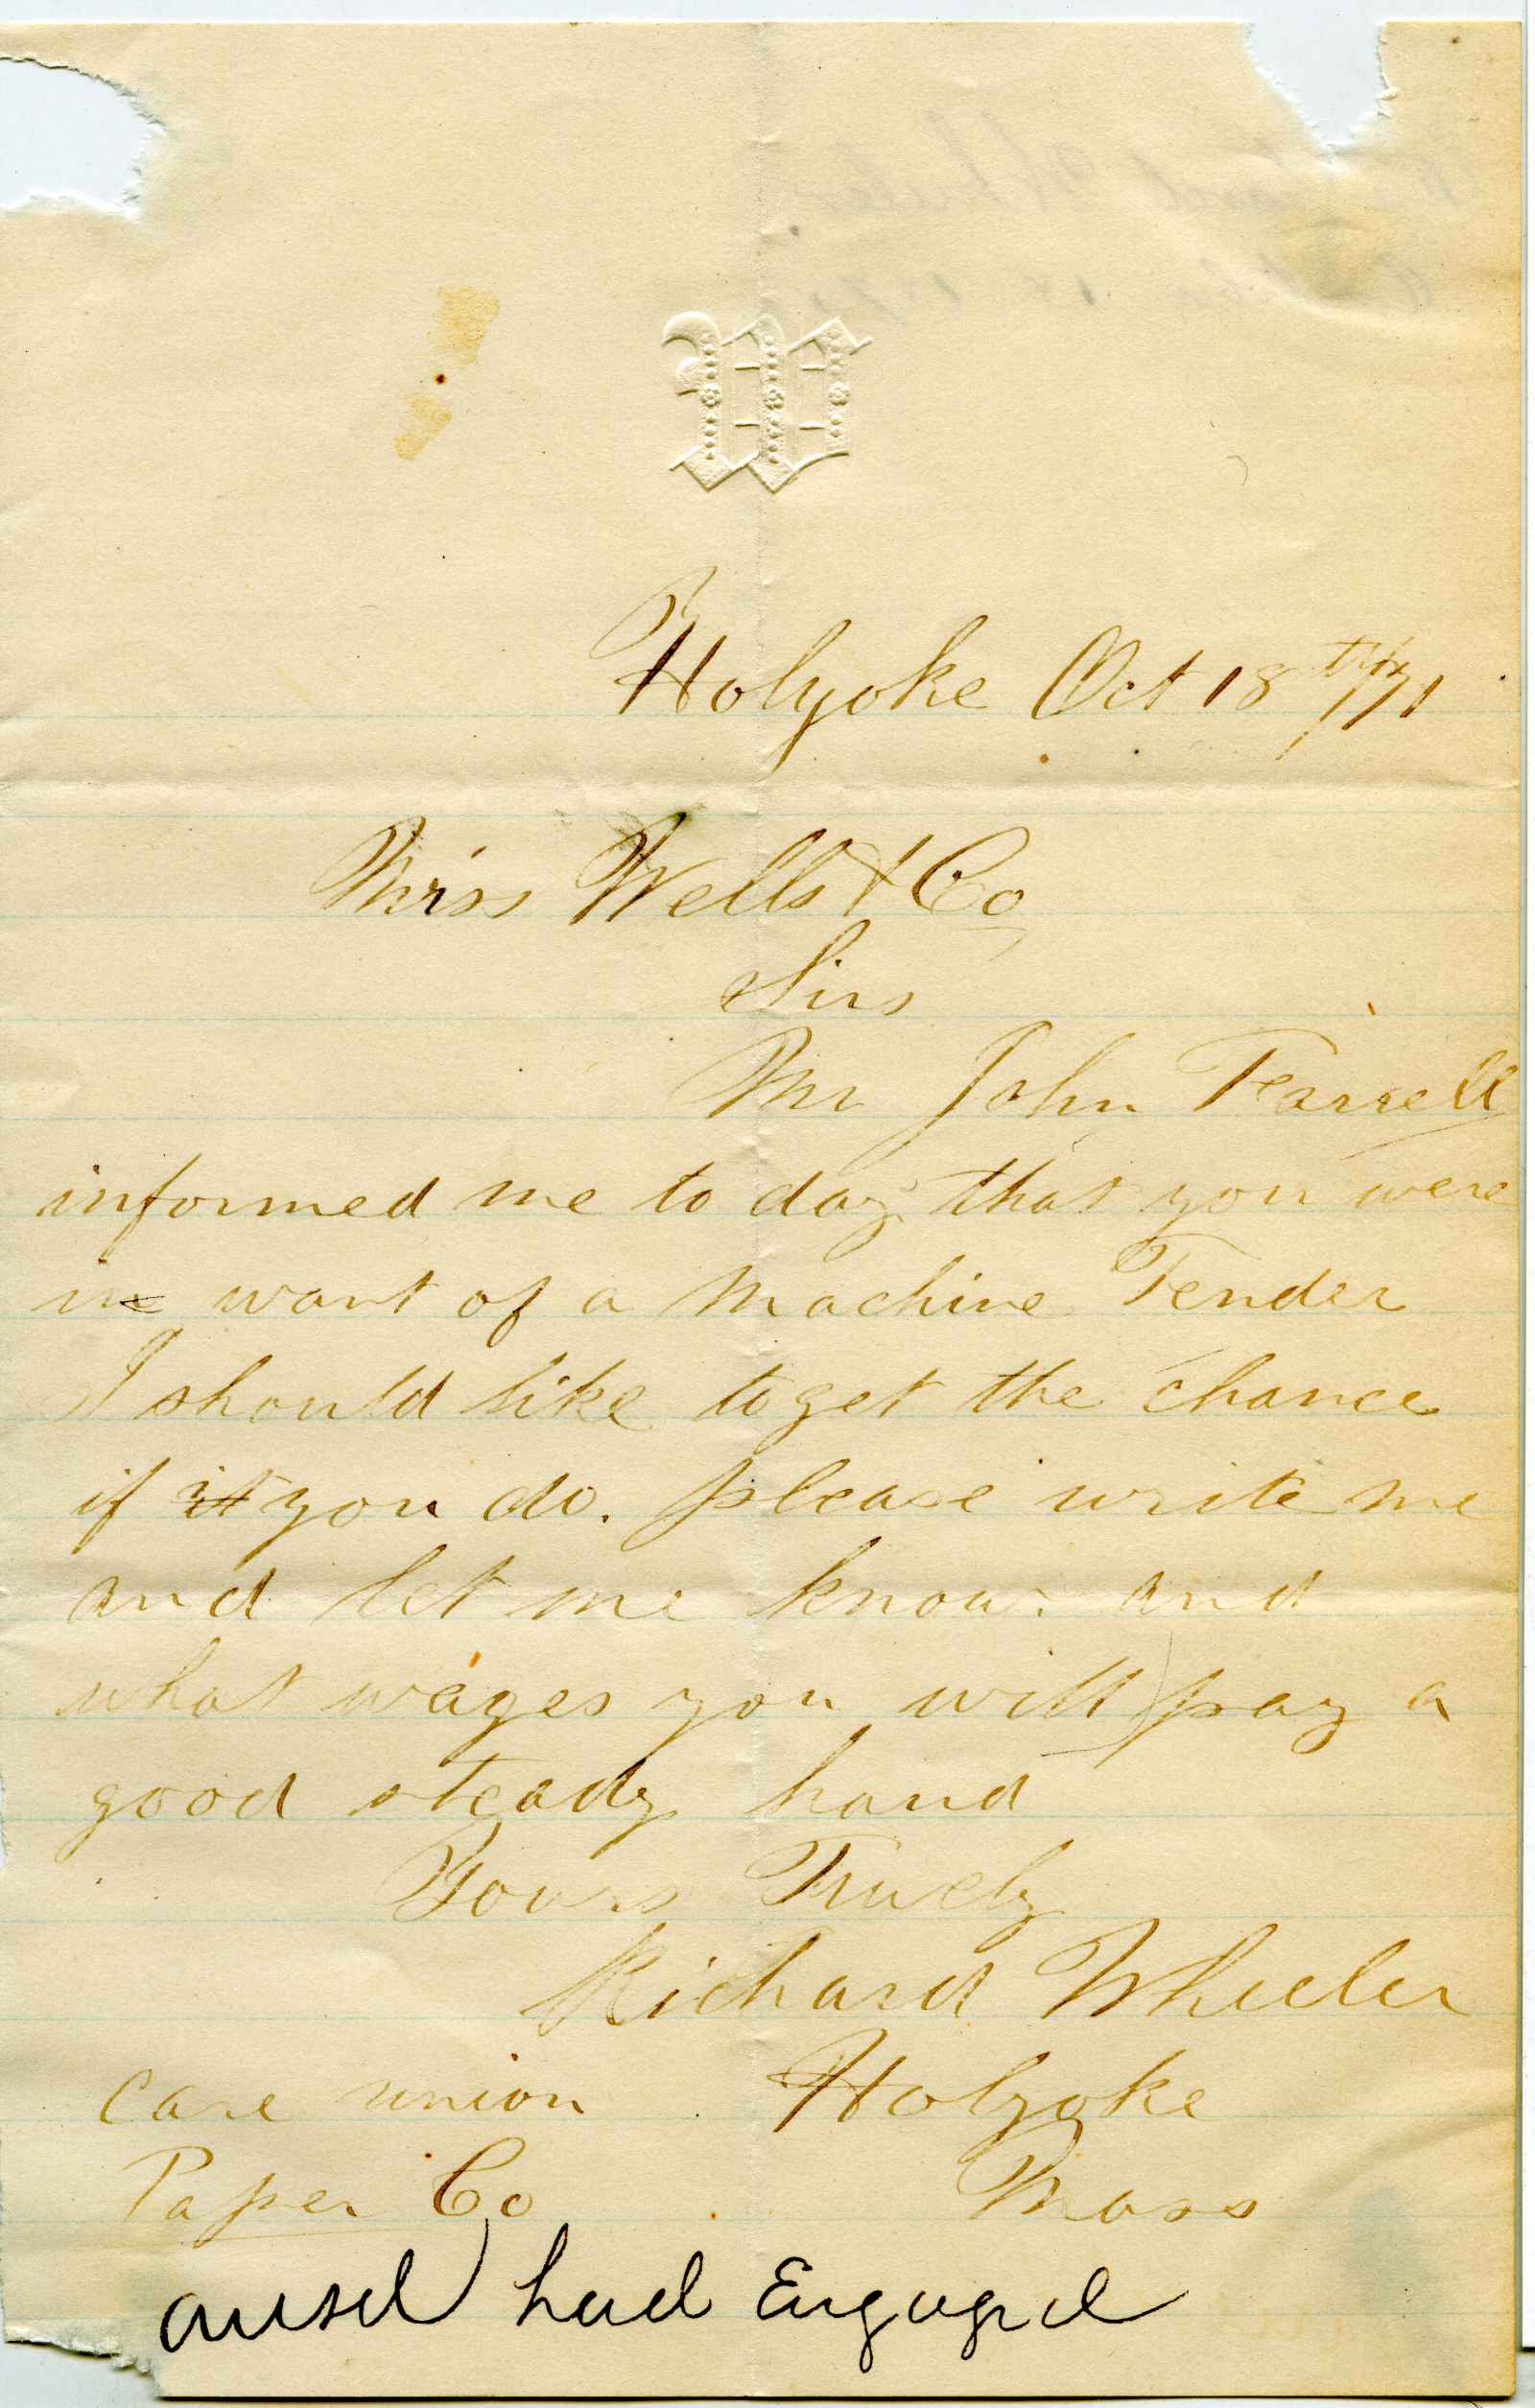 W
Holyoke Oct 18th/71
Mrss Wells & Co
Sirs
Mr John Farrell
informed me to day that you were
in want of a Machine Tender
I should like to get the chance
if it you do. please write me
and let me know. and
what wages you will pay a
good steady hand
Yours Truely
Richard Wheeler
care union Holyoke
Paper Co Mass
had Engaged